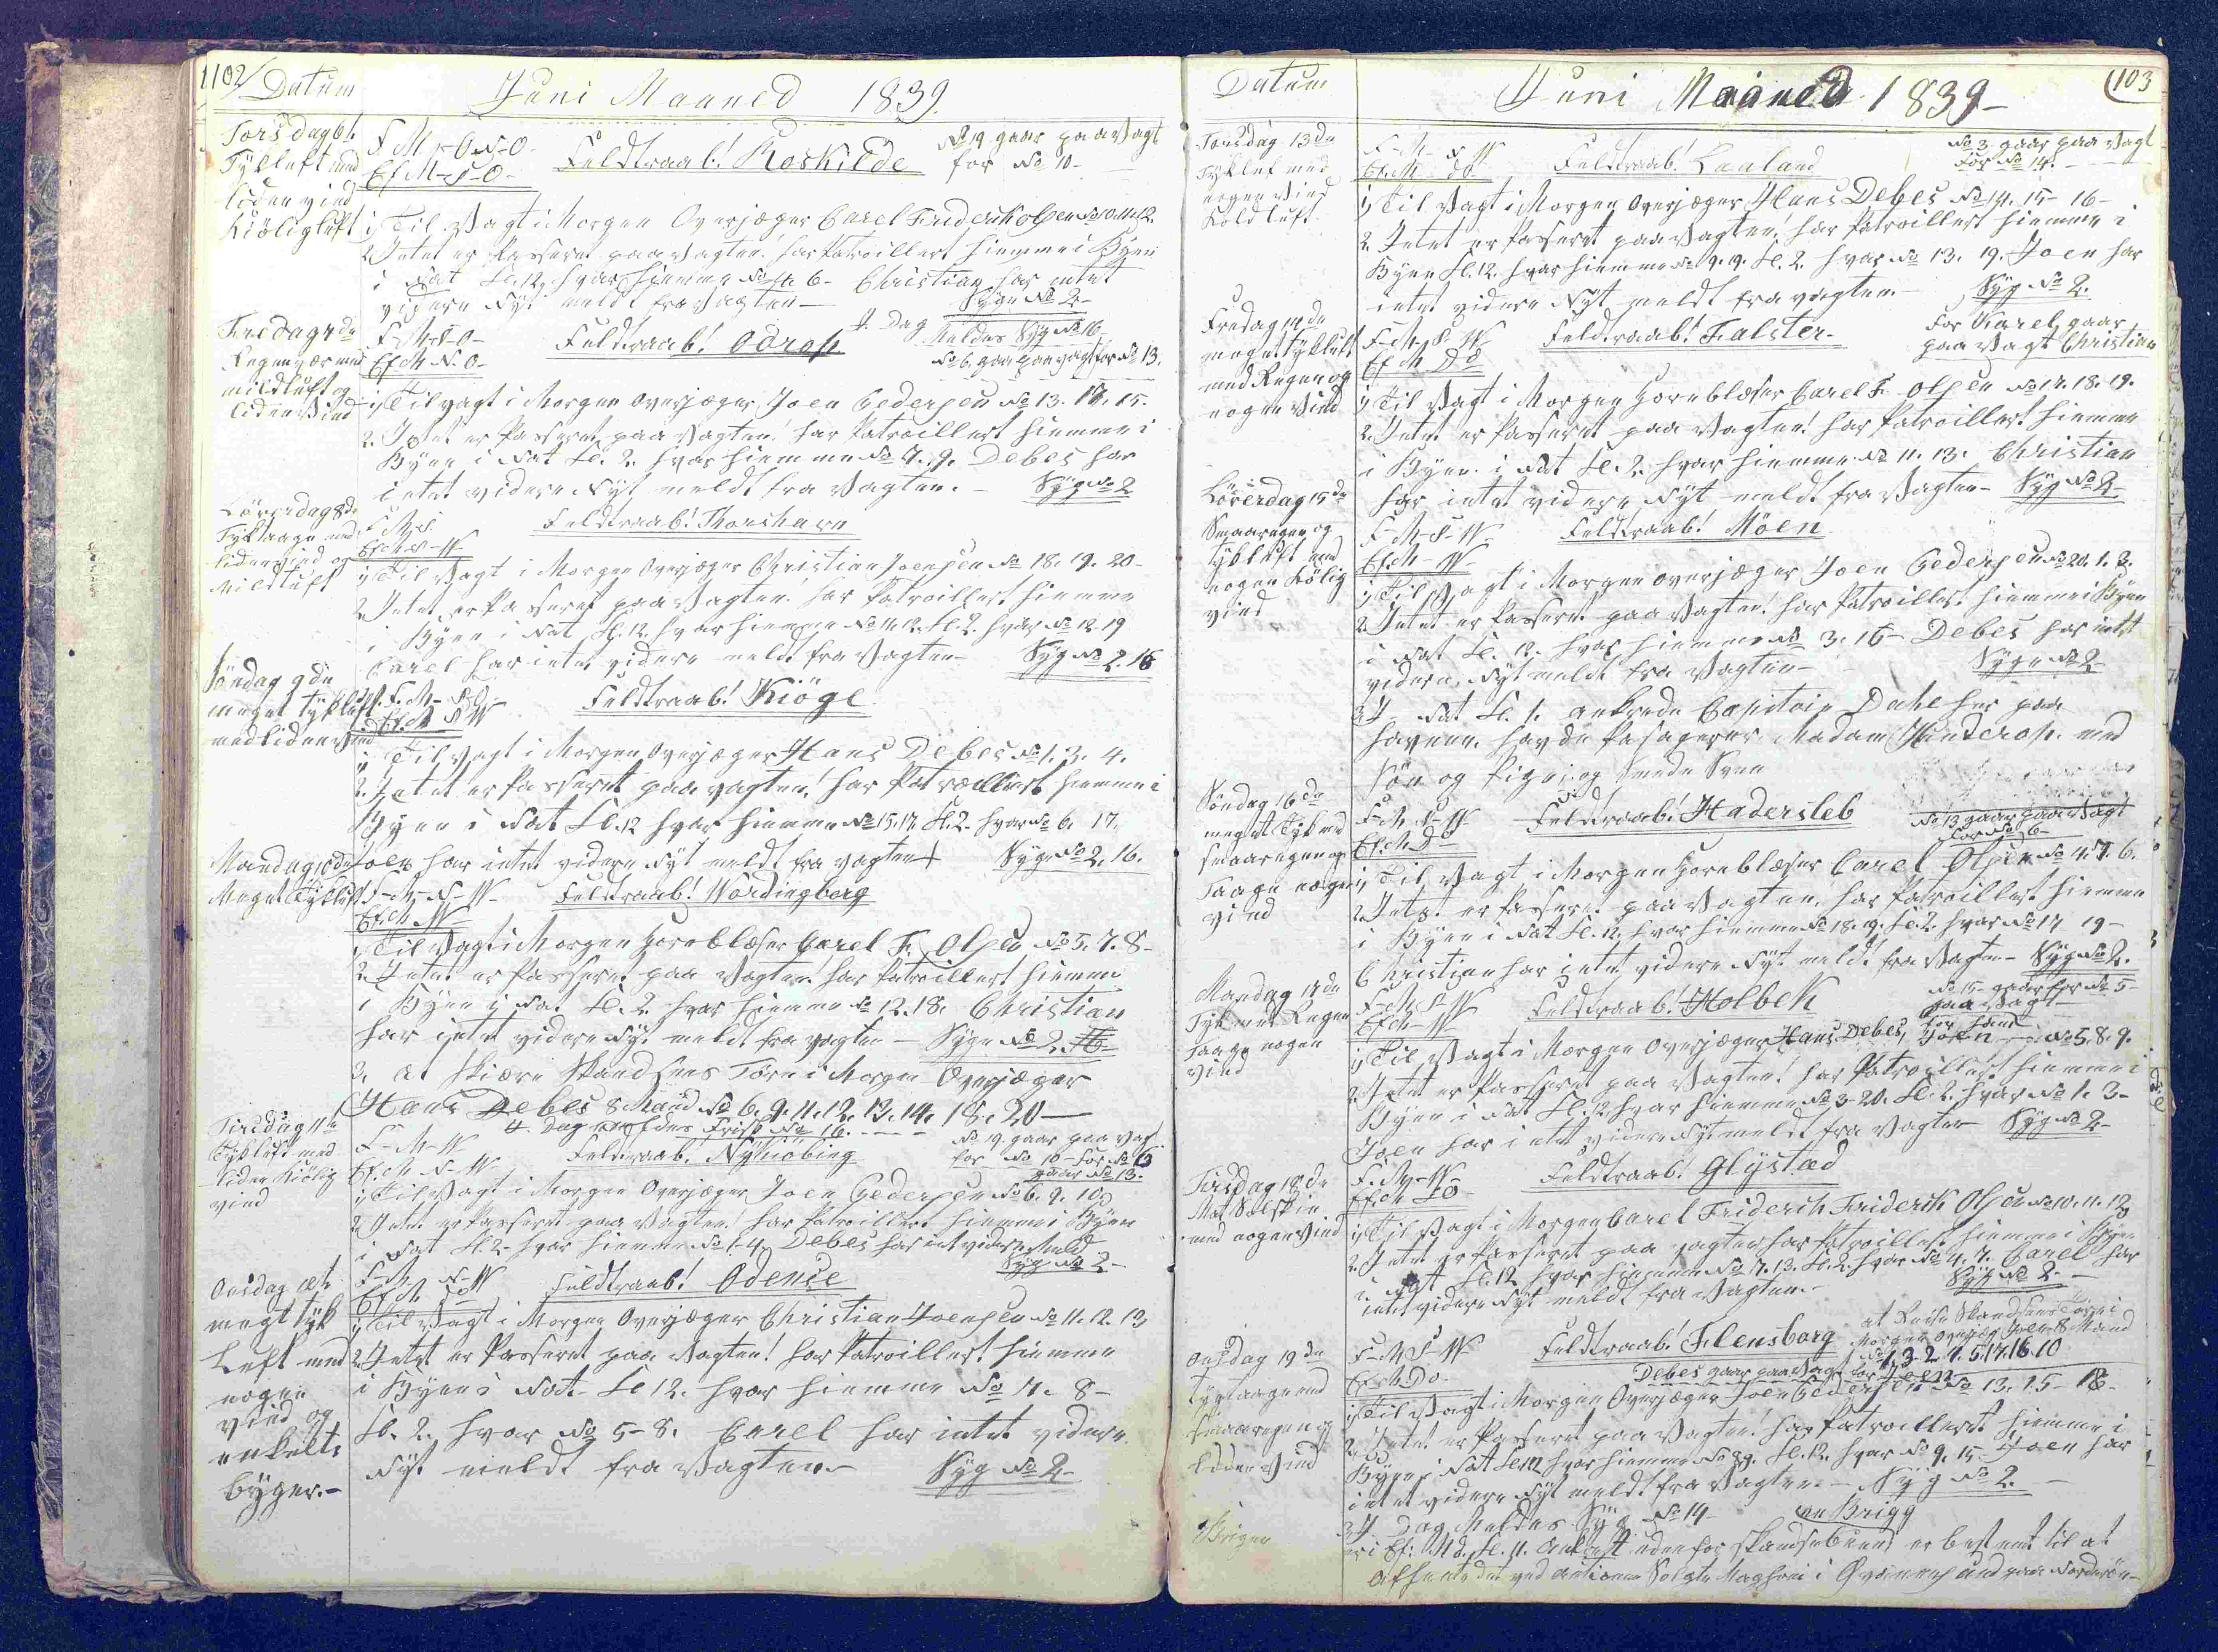 102
Datum
Juni Maaned 1839.
Torsdag 6t.
Tykluft med
liden vind
Kiöligluft
F M - O-N-O-
Ef M - S-O-
Feldtraab! Roskilde
No 19 gaar paa Vagt
for No 10-
1, Til Vagt i Morgen Overjæger Carel Friderik Olsen No 10.11.12.
2. Intet er Passeret paa Vagten! har Patroillert hiemme i Byen
i Nat Kl. 12, hvar hiemme No 6- Christian har intet
videre Nyt meldt fra Vagten- Syge No 2-
Fredag 7de
Regenvær med
mildluft og
liden Vind
F-M-S-O-
Ef M N-O-
Feldtraab! Odrop
I Dag Meldes Syg No 16-
No 6. gaar paa Vagt for No 13.
1, Til vagt i Morgen Overjæger Joen Pedersen No 13. 14. 15.
2. Intet er Passeret paa Vagten! har Patroillert hiemme i
Byen i Nat Kl. 2. hvar hiemme No 7. 9. Debes har
intet videre Nyt meldt fra Vagten.- Syg No 2
Löverdag 8de
Tyktaage med
liden vind og
Mildluft
F M-S-
Ef M-S-W-
Feldtraab! Thorshavn
1, Til Vagt i Morgen Overjæger Christian Joensen No 18. 19. 20-
2. Intet er Passeret paa Vagten! har Patroillert hiemme
i Byen i Nat Kl. 12. hvar hiemme No 11.12. Kl. 2. hvar No 12-19
Carel har intet videre meldt fra Vagten- Syg No 2. 16
Söndag 9de
meget tykluft
med liden Vind
F. M- S-O-
Ef. M S W
Feldtraab! Kiöge
1, Til Vagt i Morgen Overjæger Hans Debes No 1. 3. 4.
2. Intet er Passeret paa vagten! har Patroillert hiemme i
Byen i Nat Kl. 12 hvar hiemme No 15.17. Kl. 2. hvar No 6. 17.
Joen har intet videre Nyt meldt fra Vagten Syge No 2. 16.
Mandag 10de
Meget Tykluft
F-M-N-W-
Ef. M W
Feldtraab! Wordingborg
1, Til Vagt i Morgen Hornblæser Carel F. Olsen No 5. 7. 8-
2. Intet er Passeret paa Vagten! har Patroillert hiemme
i Byen i Nat Kl. 2. hvar hiemme No 12.18. Christian
har intet videre Nyt meldt fra vagten- Syge No 2. 16-
3, at skiære Skandsens Törv i Morgen Overjæger
Hans Debes 8 Mand No 6. 9. 11. 12. 13. 14. 18. 20-
I Dag meldes Frisk No 16.
Tirsdag 11te
Tykluft med
liden Kiölig
vind
F-M-W-
Ef. M N-W-
Feldtraab. Nykiöbing
No 19. gaar paa Vagt
for No 10- for No 6
gaar No 13.
1, Til Vagt i Morgen Overjæger Joen Pedersen No 6. 9. 10,
2. Intet er Passeret paa Vagten! har Patroillert hiemme i Byen
i Nat Kl. 2- hvar hiemme No 1-4. Debes har intet videre Meldt
Syg No 2-
Onsdag 12te
meget tyk
Luft med
nogen
vind og
enkelte
byger.-
F-M- N-W
Ef M
Feldtraab! Odense
1, Til Vagt i Morgen Overjæger Christian Joensen No 11. 12. 13,
2. Intet er Passeret paa Vagten! har Patroillert hiemme
i Byen i Nat- Kl 12. hvar hiemme No 4. 8-
Kl. 2. hvar No 5-8. Carel har intet videre
Nyt meldt fra Vagten- Syg No 2-
103
Datum
Juni Maaned 1839-
Torsdag 13de
Tykluft med
nogen Vind
Koldluft.
F-M- N W
Ef. M- do.
Feldtraab! Laaland
No 3. gaar paa Vagt
for No 14.-
1, Til Vagt i Morgen Overjæger Hans Debes No 14. 15- 16-
2. Intet er Passeret paa Vagten! har Patroillert hiemme i
Byen Kl. 12. hvar hiemme No 9. 19. Kl. 2. hvar No 13. 19. Joen har
intet videre Nyt meldt fra vagten- Syg No 2.
Fredag 14de
meget tykluft
med Regen og
nogen Vind
F-M. S. W
Ef M Do
Feldtraab! Falster-
for Karel gaar
paa Vagt Christian
1, Til Vagt i Morgen Hornblæser Carel F. Olsen No 17. 18. 19.
2. Intet er Passeret paa Vagten! har Patroillert hiemme
i Byen i Nat Kl. 2. hvar hiemme No 11. 13. Christian
har intet videre Nyt meldt fra Vagten- Syg No 2-
Löverdag 15de
Smaaregen og
tykluft med
nogen Kölig
vind
F M-S-W-
Ef. M- W-
Feldtraab! Möen
1, Til Vagt i Morgen Overjæger Joen Pedersen No 20. 1. 3.
2. Intet er Passeret paa Vagten! har Patroillert hiemme i Byen
i Nat Kl. 12. hvar hiemme No 3. 16- Debes har intet
videre Nyt meldt fra Vagten- Syge No 2-
3, I Nat Kl. 1. ankrede Capitain Dahl her paa
havnen. havde Pasagerer Madam Hunderop. med
Sön og Pige og Smeden Sven
Söndag 16de
meget Tyk med
smaaregen og
Taage nogen
vind
F. M. S-W-
Ef. M Do
Feldtraab! Hadersleb
No 13 gaar paa Vagt
for No 6-
1, Til Vagt i Morgen Hornblæser Carel Olsen No 4. 7. 6.
2. Intet er Passeret paa Vagten, har Patroillert hiemme
i Byen i Nat Kl. 12. hvar hiemme No 18. 19. Kl. 2. hvar No 17 19-
Christian har intet videre Nyt meldt fra Vagten- Syg No 2.
Mandag 17de
Tyk med Regen
Taage nogen
vind
F-M S-W
Ef M- W
Feldtraab! Holbek
No 15- gaar for No 5-
paa Vagt-
1, Til Vagt i Morgen Overjæger Hans Debes, for ham Joen No 5. 8. 9.
2. Intet er Passeret paa Vagten! har Patroillert hiemme i
Byen i Nat Kl. 12 hvar hiemme No 3-20. Kl. 2. hvar No 1. 3-
Joen har intet videre Nyt meldt fra Vagten Syg No 2-
Tirsdag 18de
Mat Solskin
med nogen Vind
F. M-W-
Ef M
Feldtraab! Glystæd
1, Til Vagt i Morgen Carel Friderich Friderik Olsen No 10. 11. 12,
2. Intet er Passeret paa vagten har Patroillert hiemme i Byen
i Nat Kl. 12 hvar hiemme No 7. 13. Kl. 2. hvar No 4. 7. Carel har
intet videre Nyt meldt fra Vagten.- Syg No 2.-
Onsdag 19de
Tyktaage med
smaaregen og
liden Vind
F-M S-W-
Ef M Do-
Feldtraab! Flensborg
at Reise Skandsens Törv i
Morgen Overjæg Joen 8 Mand
No 1. 3. 2. 4. 5. 17. 16. 10
Debes gaar paa Vagt for Joen
1, Til Vagt i Morgen Overjæger Joen Pedersen No 13. 15- 18-
2. Intet er Passeret paa Vagten! har Patroilleret hiemme i
Byen i Nat hvar hiemme No 8 9. Kl. 12. hvar No 9. 15. Joen har
intet videre Nyt meldt fra Vagten.- Syg No 2.-
3, I Dag Meldes Syg No 14
en Brigg
Brigen
er i Ef: Md. Kl. 11. Ankret uden for skandsebien er bestemt til at
afhente det ved auctionen Solgte i Qvannesund paa Norderöe-